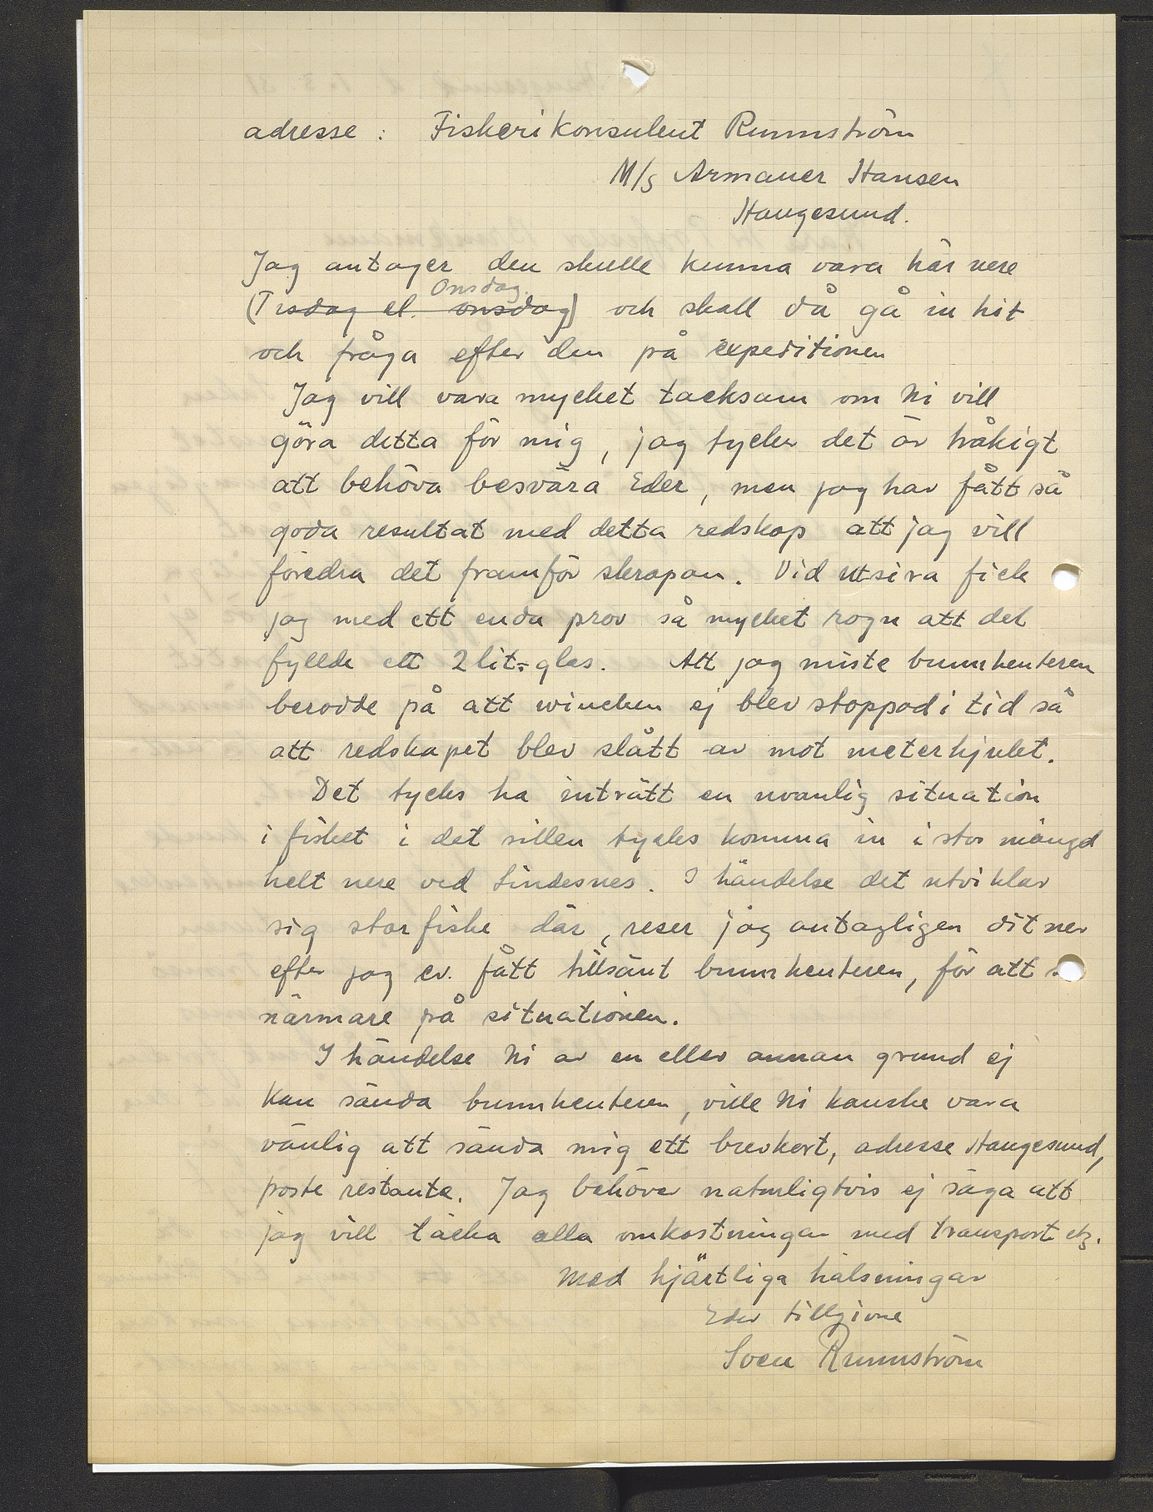 adresse : Fiskerikonsulent Runnström
M/S Armauer Hansen
Haugesund.
Jag antager den skulle kunna vara här nere
Onsdag.
(Tisdag el. onsdag) och skall då gå in hit
och fråga efter den på expeditionen
Jag vill vara mycket tacksam om Ni vill
göra detta för mig, jag tycker det är tråkigt
att behöva besvära Eder, men jag har fått så
goda resultat med detta redskap att jag vill
föredra det framför skrapan. Vid Utsira fick
jag med ett enda prov så mycket rogn att det
fyllde ett 2 lit=glas. Att jag miste bunnhenteren
berodde på att winchen ej blev stoppad i tid så
att redskapet blev slått av mot meterhjulet.
Det tycks ha inträtt en uvanlig situation
i fisket i det sillen tycks komma in i stor mängd
helt nere ved Lindesnes. I händelse det utviklar
sig storfiske där, reser jag antagligen dit ner
efter jag ev. fått tillsänt bunnhenteren, för att
närmare på situationen.
I händelse Ni av en eller annan grund ej
kan sända bunnhenteren, ville Ni kanske vara
vänlig att sända mig ett brevkort, adresse Haugesund,
poste restante. Jag behöver naturligtvis ej säga att
jag vill täcka alla omkostningar med transport etz.
Med hjärtliga hälsningar
Eder tillgivne
Sven Runnström